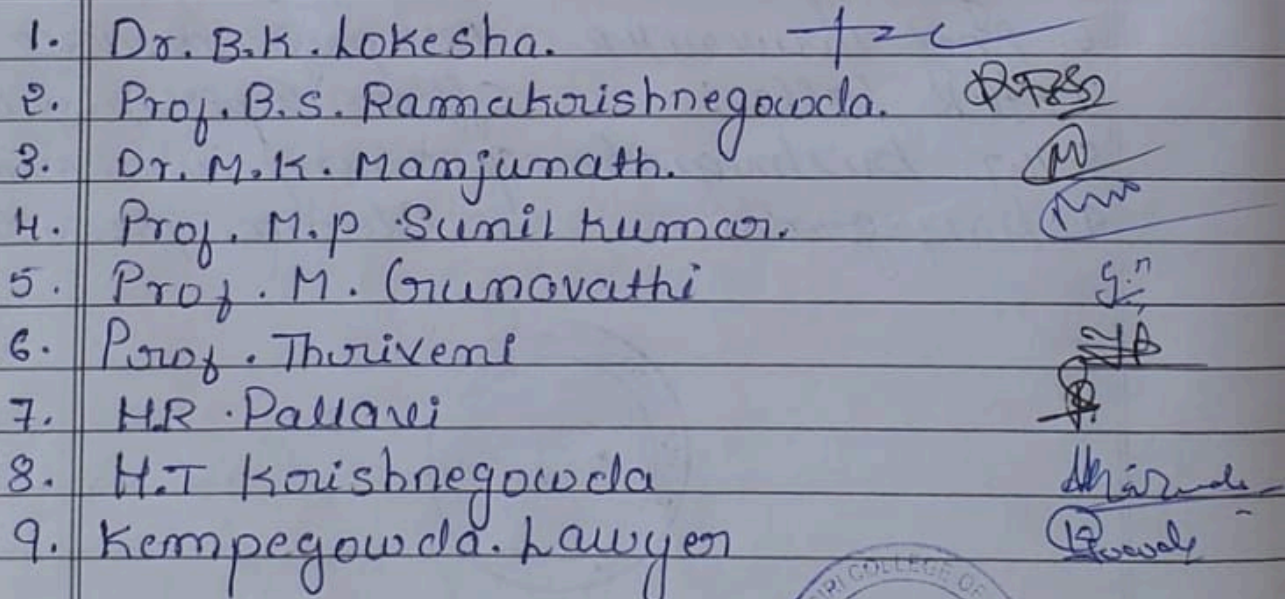 1. Dr. B.K. Lokesha.
2. Prof. B.S. Ramakrishnegowda.
3. Dr. M.K. Manjunath.
4. Prof. M.P Sunil Kumar.
5. Prof. M. Gunavathi
6. Prof. Thriveni
7. H.R. Pallavi
8. H.T Krishnegowda
9. Kempegowda. Lawyer
COLLEGE OF